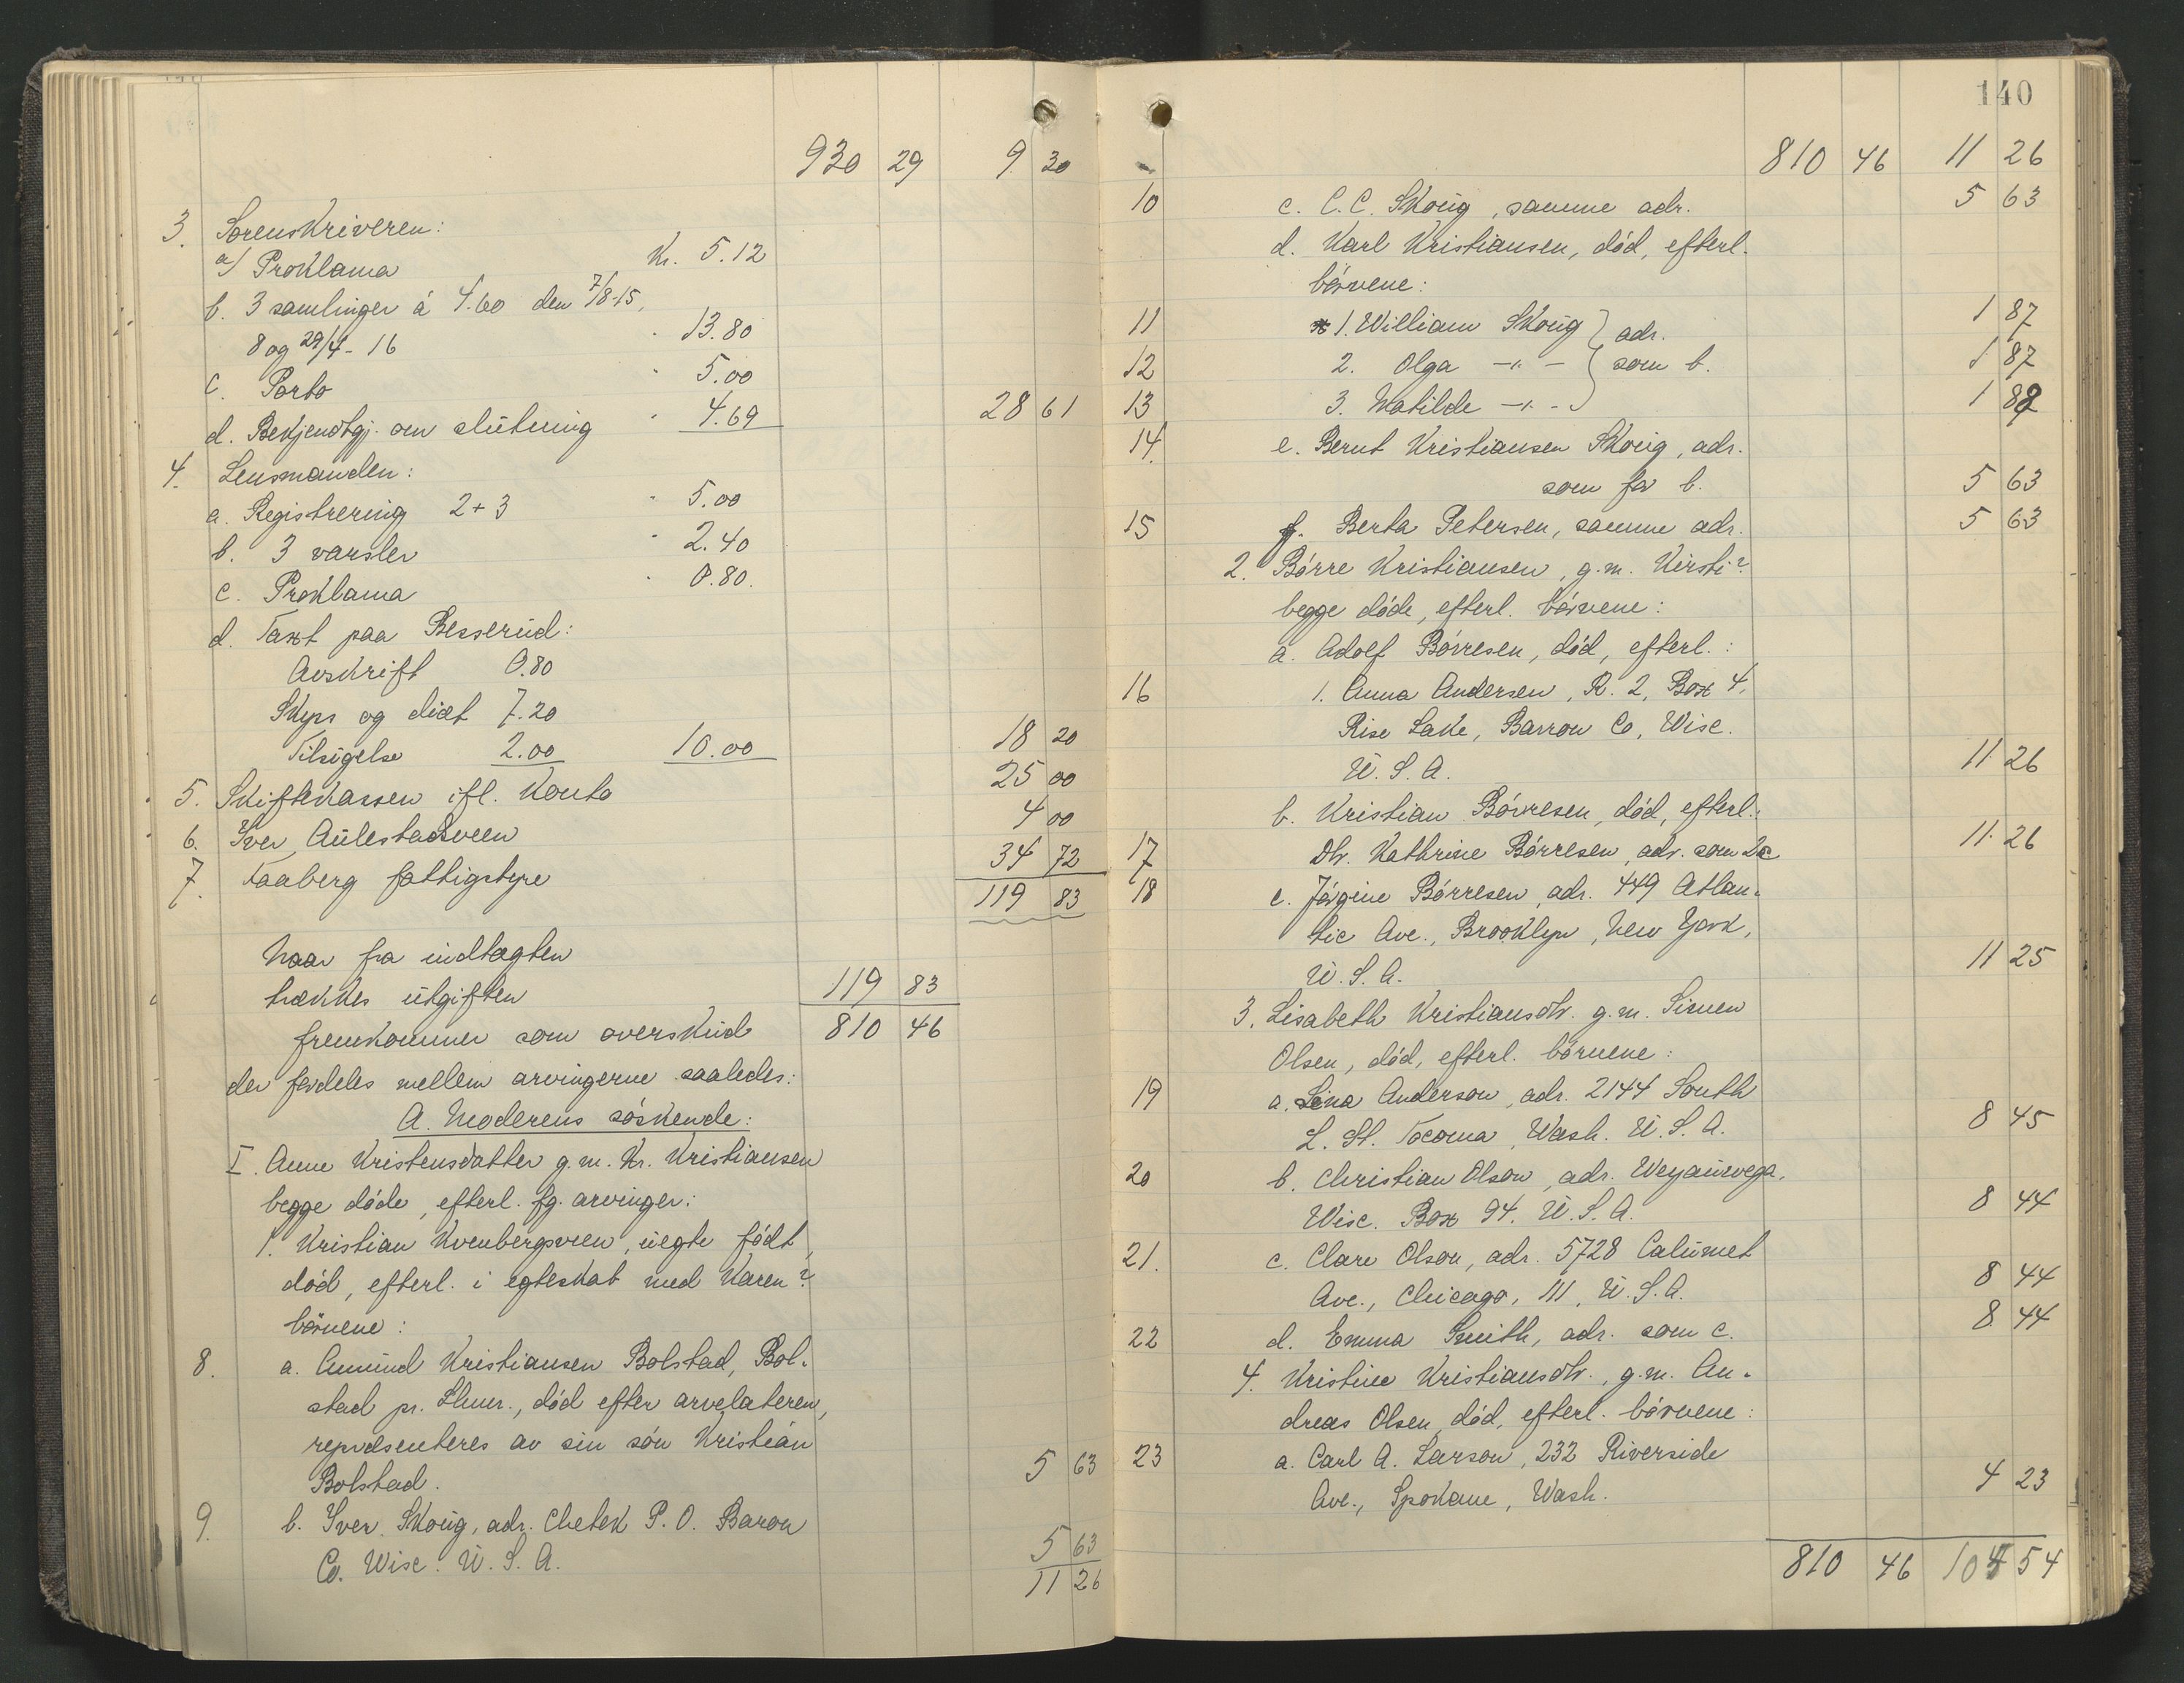 930 29 9 30
3. Sorenskriveren:
a/ Proklama Kr. 5.12
b. 3 samlinger á 4.60 den 7/8-15,
8 og 29/4-16 " 13.80
c. Porto " 5.00
d. Bekjendtgj. om slutning " 4.69 28 61
4. Lensmanden:
a. Registrering 2+3 " 5.00
b. 3 varsler " 2.40
c. Proklama " 0.80.
d. Taxt paa Besserud:
Avskrift 0.80
Skyss og diæt 7.20
Tilsigelse 2.00 10.00 18 20
5. Skiftekassen ifl. konto 25 00
6. Iver Aulestadsveen 4 00
7. Faaberg fattigstyre 34 72
119 83
Naar fra indtægten
trækkes utgiften 119 83
fremkommer som overskud 810 46
der fordeles mellem arvingerne saaledes:
A. Moderens söskende:
I. Anne Kristensdatter g.m. Kr. Kristiansen
begge döde, efterl. fg. arvinger:
1. Kristian Kvenbergsveen, uegte födt,
död, efterl. i egteskab med Karen?
börnene:
8. a. Amund Kristiansen Bolstad, Bol-
stad pr. Lhmr., död efter arvelateren,
repræsenteres av sin sön Kristian
Bolstad. 5 63
9. b. Iver Skoug, adr. Chetek P.O. Baron
Co. Wisc. U.S.A. 5 63
11 26
140
810 46 11 26
10 c. C.C. Skoug, samme adr. 5 63
d. Karl Kristiansen, död, efterl.
börnene:
11 1. William Skoug } adr. 1 87
12 2. Olga -"- } som b. 1 87
13 3. Matilde -"- 1 88
14. e. Bernt Kristiansen Skoug, adr.
som for b. 5 63
15 f. Berta Petersen, samme adr. 5 63
2. Börre Kristiansen, g.m. Kirsti?
begge döde, efterl. börnene:
a. Adolf Börresen, död, efterl.:
16 1. Anna Andersen, R. 2, Box 4,
Rise Lake, Barron Co, Wisc.
U.S.A. 11 26
b. Kristian Börresen, död, efterl.:
17 Dtr. Kathrine Börresen, adr. som 2c 11 26
18 c. Jörgine Börresen, adr. 449 Atlan-
tic Ave., Brooklyn, New York,
U.S.A. 11 25
3. Lisabeth Kristiansdtr. g.m. Simen
Olsen, död, efterl. börnene:
19 a. Lena Anderson, adr. 2144 South
L. St. Tocoma, Wash. U.S.A. 8 45
20 b. Christian Olson, adr. Weyauwega,
Wisc. Box 94. U.S.A. 8 44
21. c. Clare Olson, adr. 5728 Calumet
Ave., Chicago, Ill, U.S.A. 8 44
22 d. Emma Smith, adr. som c. 8 44
4. Kristine Kristiansdtr., g.m. An-
dreas Olsen, död, efterl. börnene:
23 a. Carl A. Larson, 232 Riverside
Ave., Spokane, Wash. 4 23
810 46 104 54